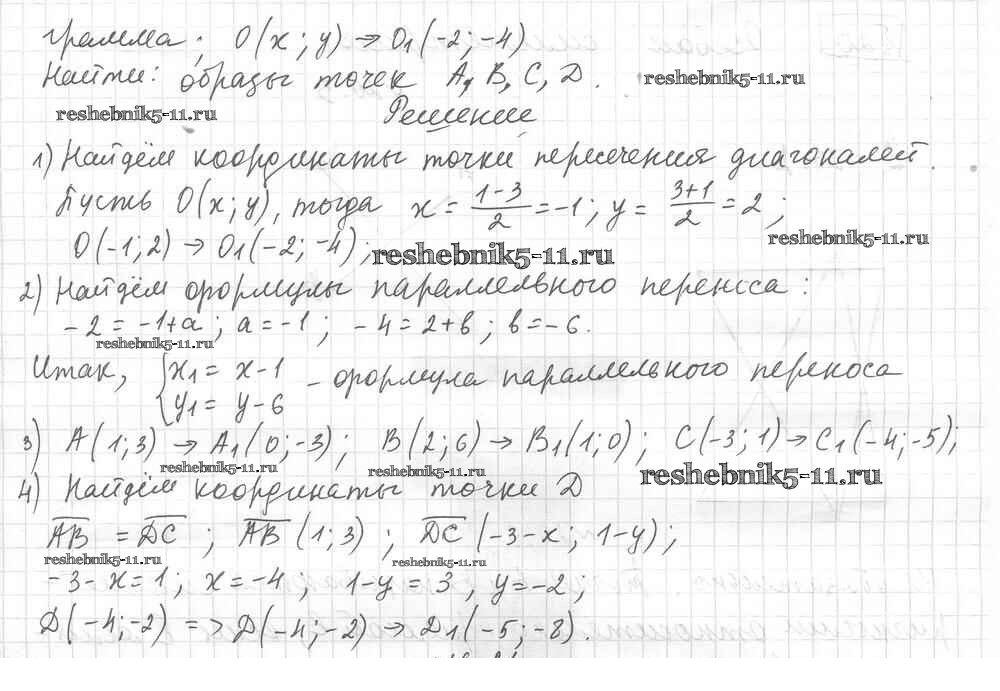 грамма; O(x; y) → O₁(-2; -4)
Найти: образы точек A, B, C, D. reshebnik5-11.ru
reshebnik5-11.ru Решение
1) Найдём координаты точки пересечения диагоналей.
Пусть O(x; y), тогда x = (1-3)/2 = -1; y = (3+1)/2 = 2;
O(-1; 2) → O₁(-2; -4); reshebnik5-11.ru reshebnik5-11.ru
2) Найдём формулы параллельного переноса:
-2 = -1+a; a = -1; -4 = 2+b; b = -6.
reshebnik5-11.ru
Итак, { x₁ = x-1 - формула параллельного переноса
y₁ = y-6
3) A(1; 3) → A₁(0; -3); B(2; 6) → B₁(1; 0); C(-3; 1) → C₁(-4; -5);
reshebnik5-11.ru reshebnik5-11.ru reshebnik5-11.ru
4) Найдём координаты точки D
A̅B̅ = D̅C̅; A̅B̅(1; 3); D̅C̅(-3-x; 1-y);
reshebnik5-11.ru reshebnik5-11.ru
-3-x=1; x=-4; 1-y=3, y=-2;
D(-4; -2) => D(-4; -2) → D₁(-5; -8).